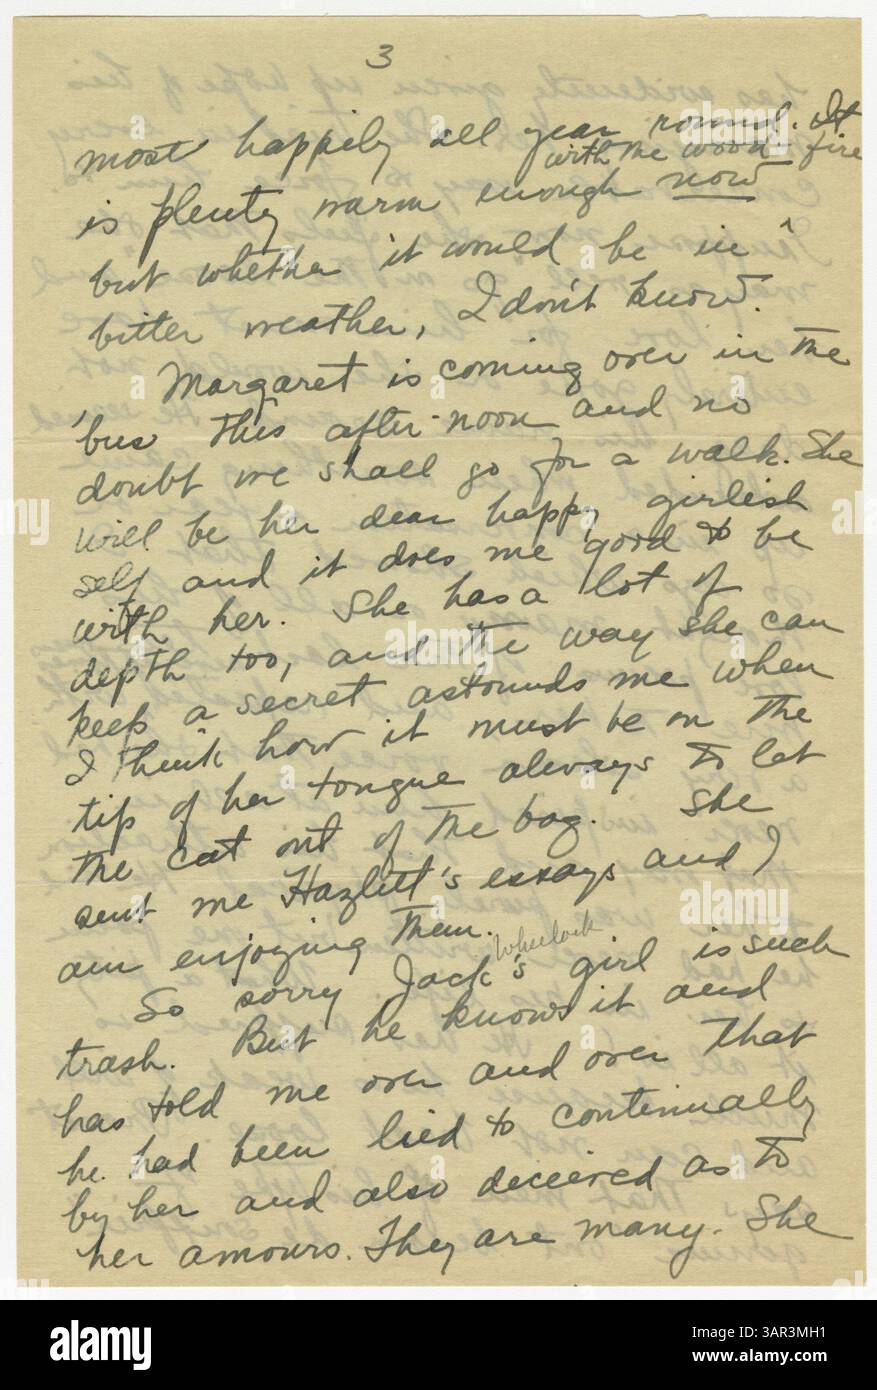 3
most happily all year round. It
with the wood fire
is plenty warm enough now
but whether it would be in ^
bitter weather, I don't know.
Margaret is coming over in the
'bus this after-noon and no
doubt we shall go for a walk. She
will be her dear happy girlish
self and it does me good to be
with her. She has a lot of
depth too, and the way she can
keep a secret astounds me when
I think how it must be on the
tip of her tongue always to let
the cat out of the bag. She
sent me Hazlitt's essays and I
am enjoying them.
Wheelock
So sorry Jack's girl is such
trash. But he knows it and
has told me over and over that
he had been lied to continually
by her and also deceived as to
her amours. They are many. She
alamy
Image ID: 3AR3MH1
www.alamy.com